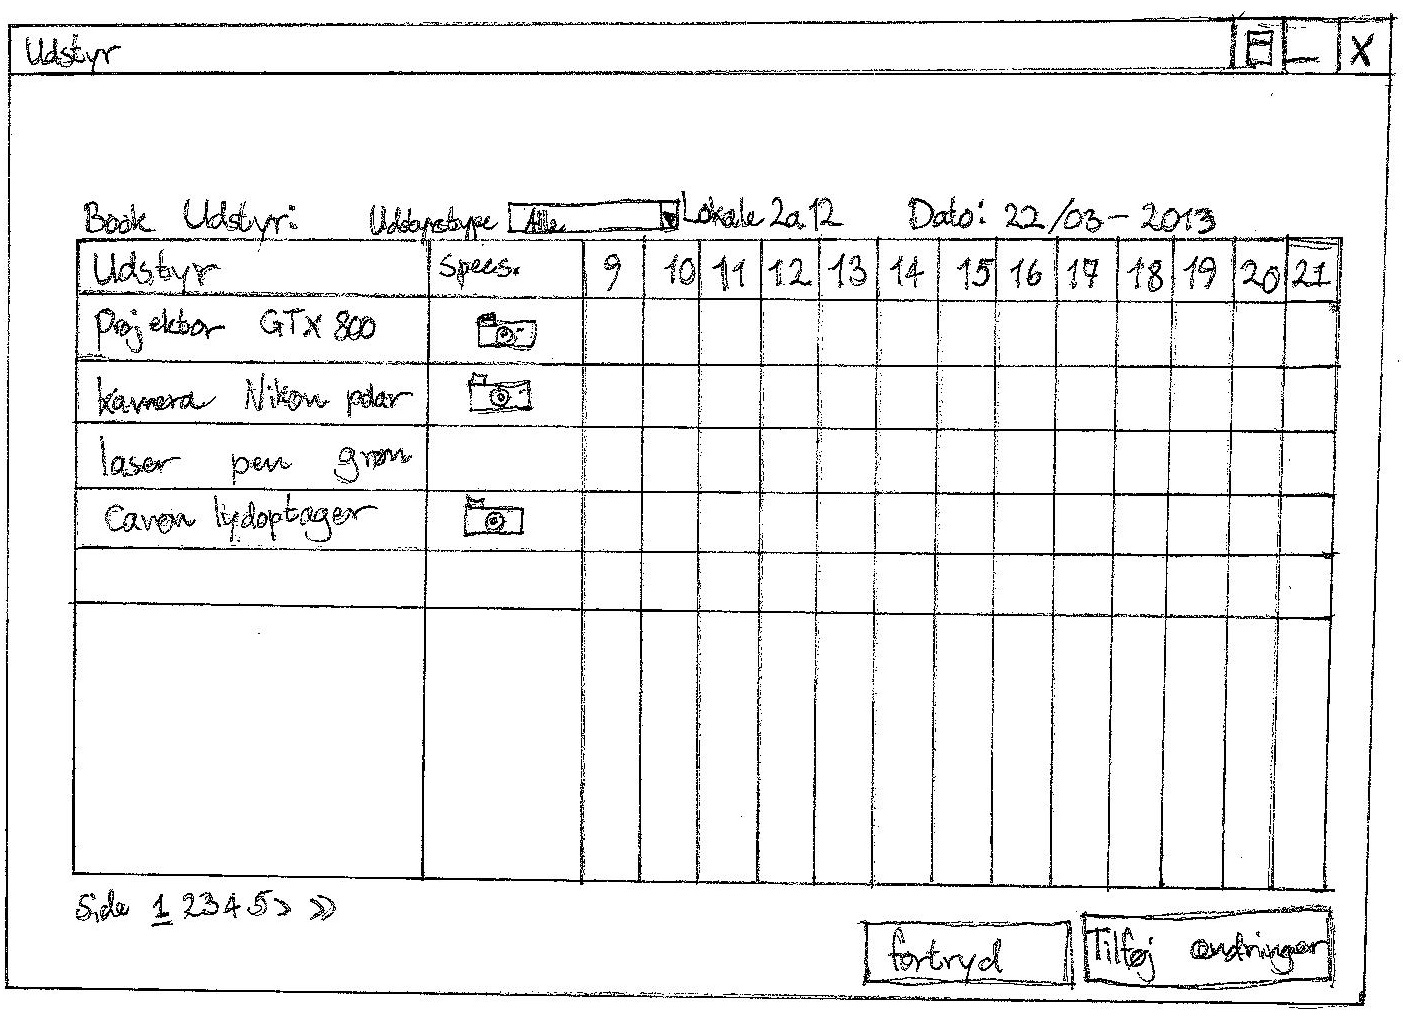 Udstyr X
Book Udstyr: Udstyrstype Alle Lokale 2a.12 Dato: 22/03-2013
Udstyr Specs. 9 10 11 12 13 14 15 16 17 18 19 20 21
Projektor GTX 800
kamera Nikon polar
laser pen grøn
Canon lydoptager
Side 1 2 3 4 5 > >>
fortryd Tilføj ændringer